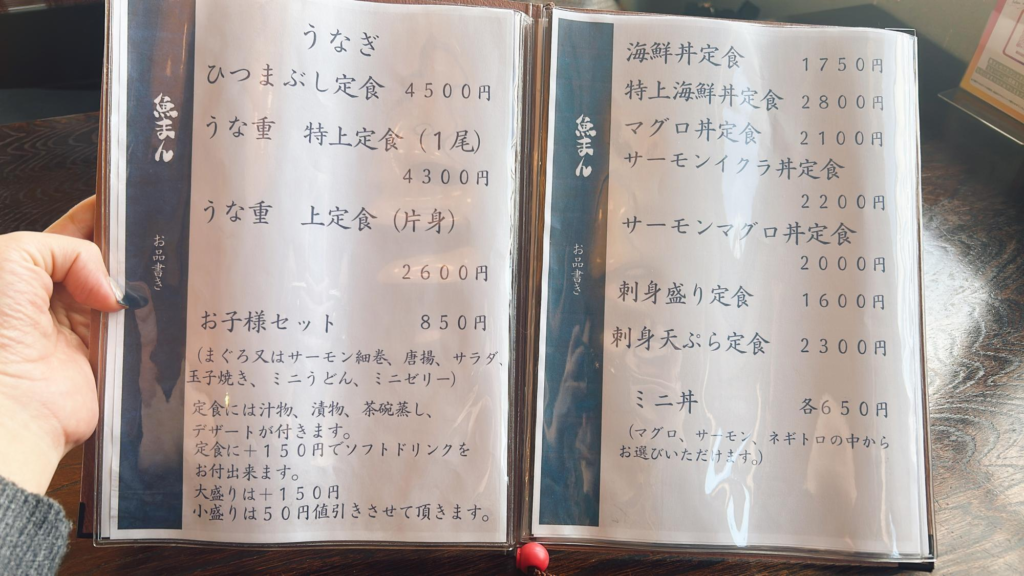 魚まん
お品書き
うなぎ
ひつまぶし定食 4500円
うな重 特上定食(1尾)
4300円
うな重 上定食(片身)
2600円
お子様セット 850円
(まぐろ又はサーモン細巻、唐揚、サラダ、
玉子焼き、ミニうどん、ミニゼリー)
定食には汁物、漬物、茶碗蒸し、
デザートが付きます。
定食に+150円でソフトドリンクを
お付出来ます。
大盛りは+150円
小盛りは50円値引きさせて頂きます。
魚まん
お品書き
海鮮丼定食 1750円
特上海鮮丼定食 2800円
マグロ丼定食 2100円
サーモンイクラ丼定食
2200円
サーモンマグロ丼定食
2000円
刺身盛り定食 1600円
刺身天ぷら定食 2300円
ミニ丼 各650円
(マグロ、サーモン、ネギトロの中から
お選びいただけます。)